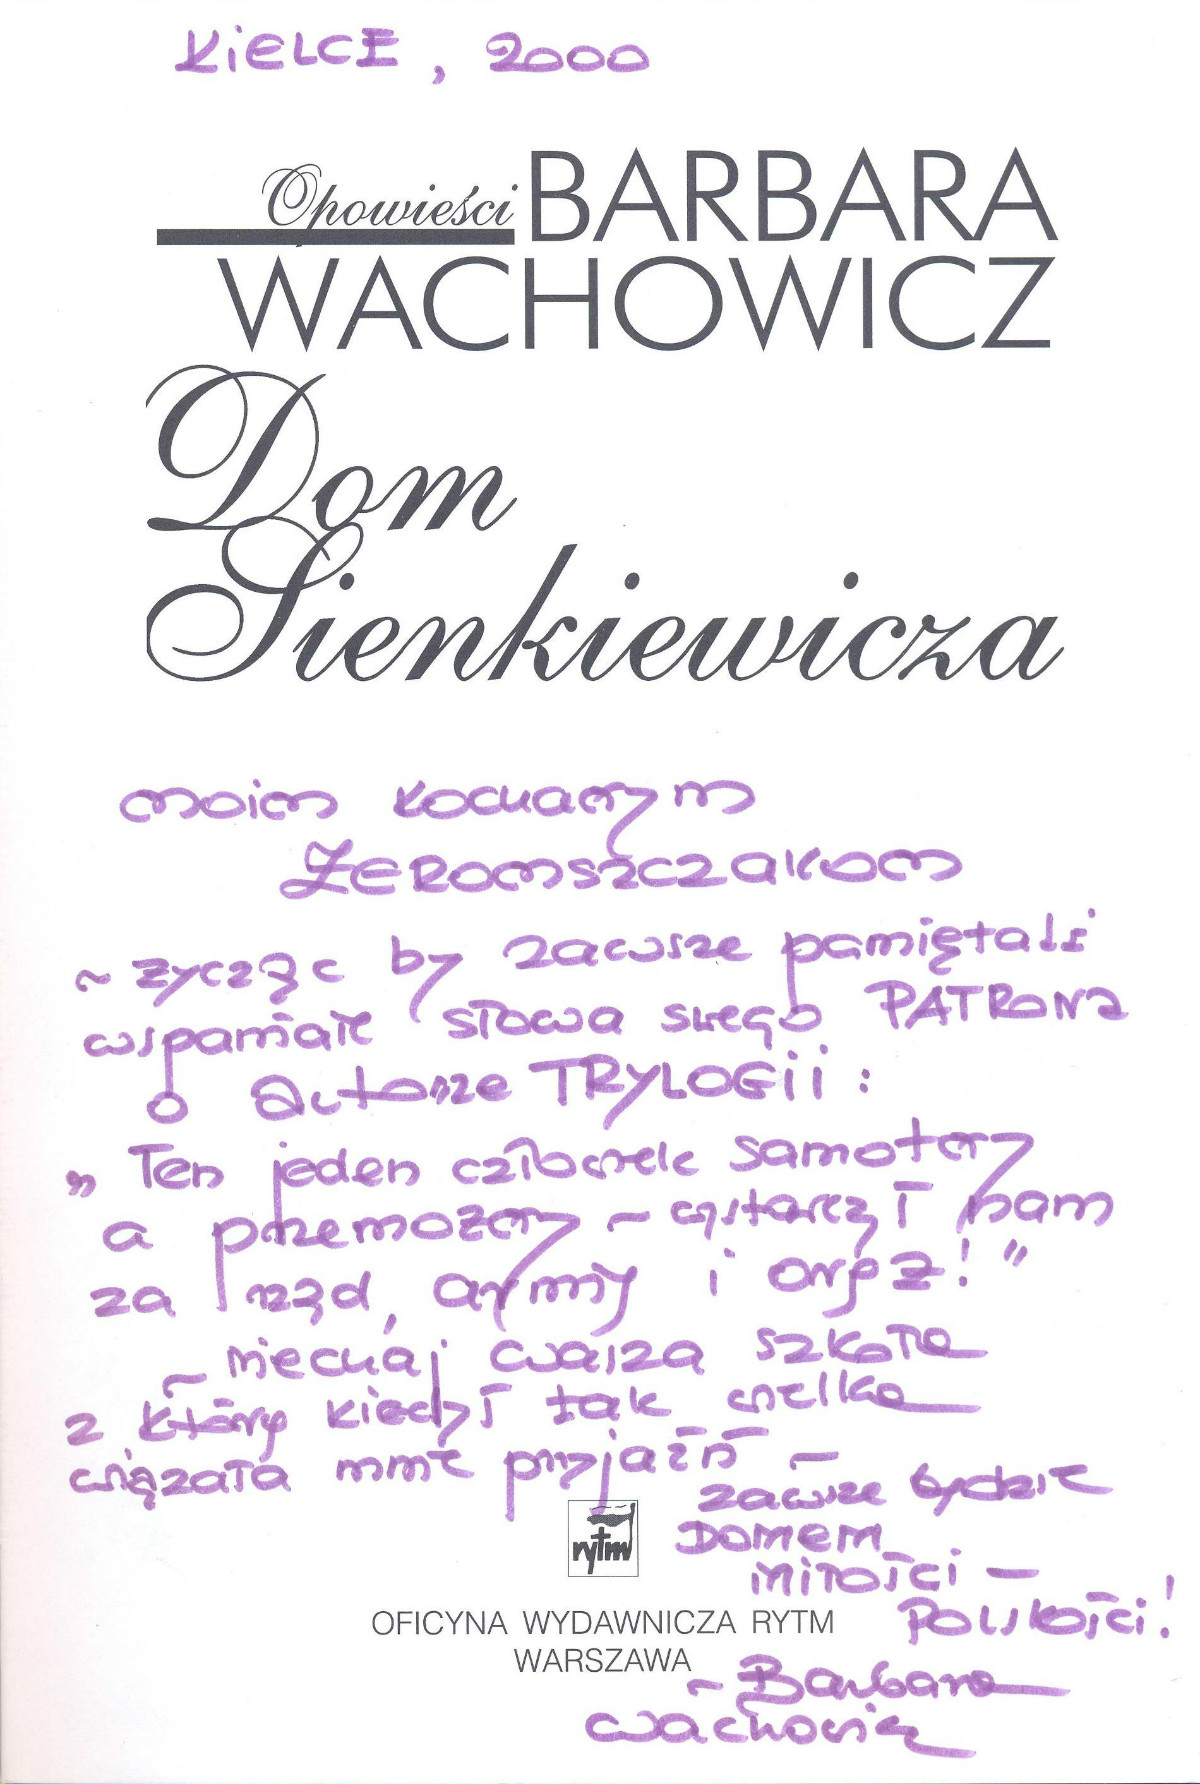 KiELCE, 2000
Opowieści BARBARA
WACHOWICZ
Dom
Sienkiewicza
moim kochanym
ŻEROMSZCZAKOM
~ życząc by zawsze pamiętali
wspaniałe słowa swego PATRONA
o autorze TRYLOGii :
„Ten jeden człowiek samotny
a przemożny ~ wystarczył nam
za rząd, army i oręż!"
~ niechaj wasza szkoła
z którą kiedyś tak wielka
wiązała mnie przyjaźń –
zawsze będzie
DOMEM
miłości –
POLSKOści!
rytm
OFICYNA WYDAWNICZA RYTM
WARSZAWA
~ Barbara
Wachowicz